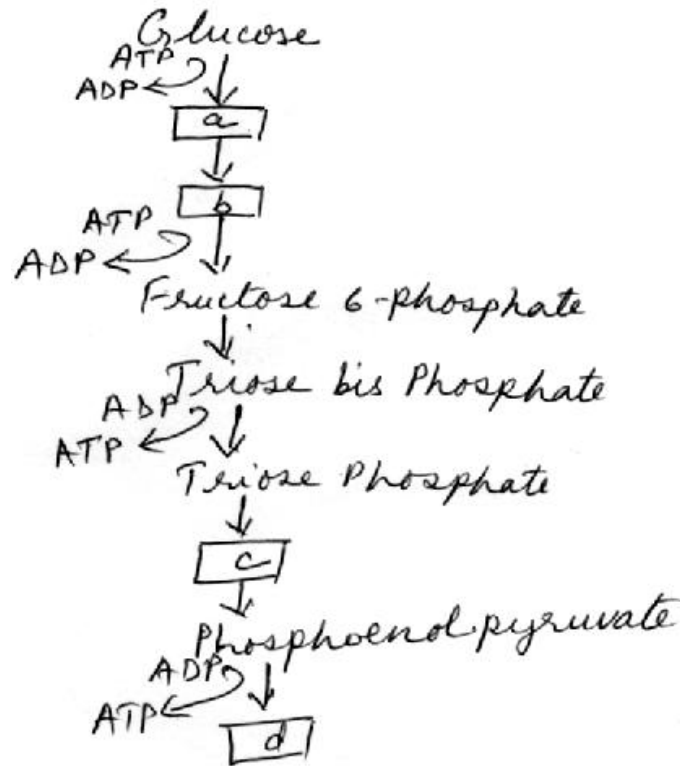 Glucose
ATP
ADP
a
b
ATP
ADP
Fructose 6-phosphate
Triose bis Phosphate
ADP
ATP
Triose Phosphate
c
Phosphoenol pyruvate
ADP
ATP
d